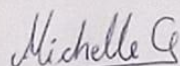 Michelle G